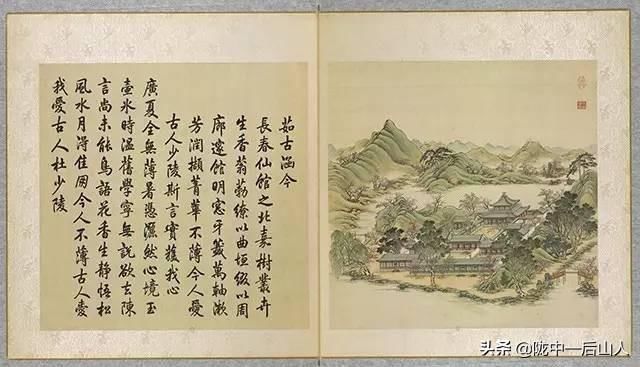 茹古涵今
長春仙館之北嘉樹叢卉
生香蓊葧繚以曲垣綴以周
廊邃館明窓牙籤萬軸漱
芳潤擷菁華不薄今人愛
古人少陵斯言實獲我心
廣夏全無薄暑憑灑然心境玉
壺氷時溫舊學寧無說欲去陳
言尚未能鳥語花香生靜悟松
風水月得佳朋今人不薄古人愛
我愛古人杜少陵
头条 @陇中一后山人